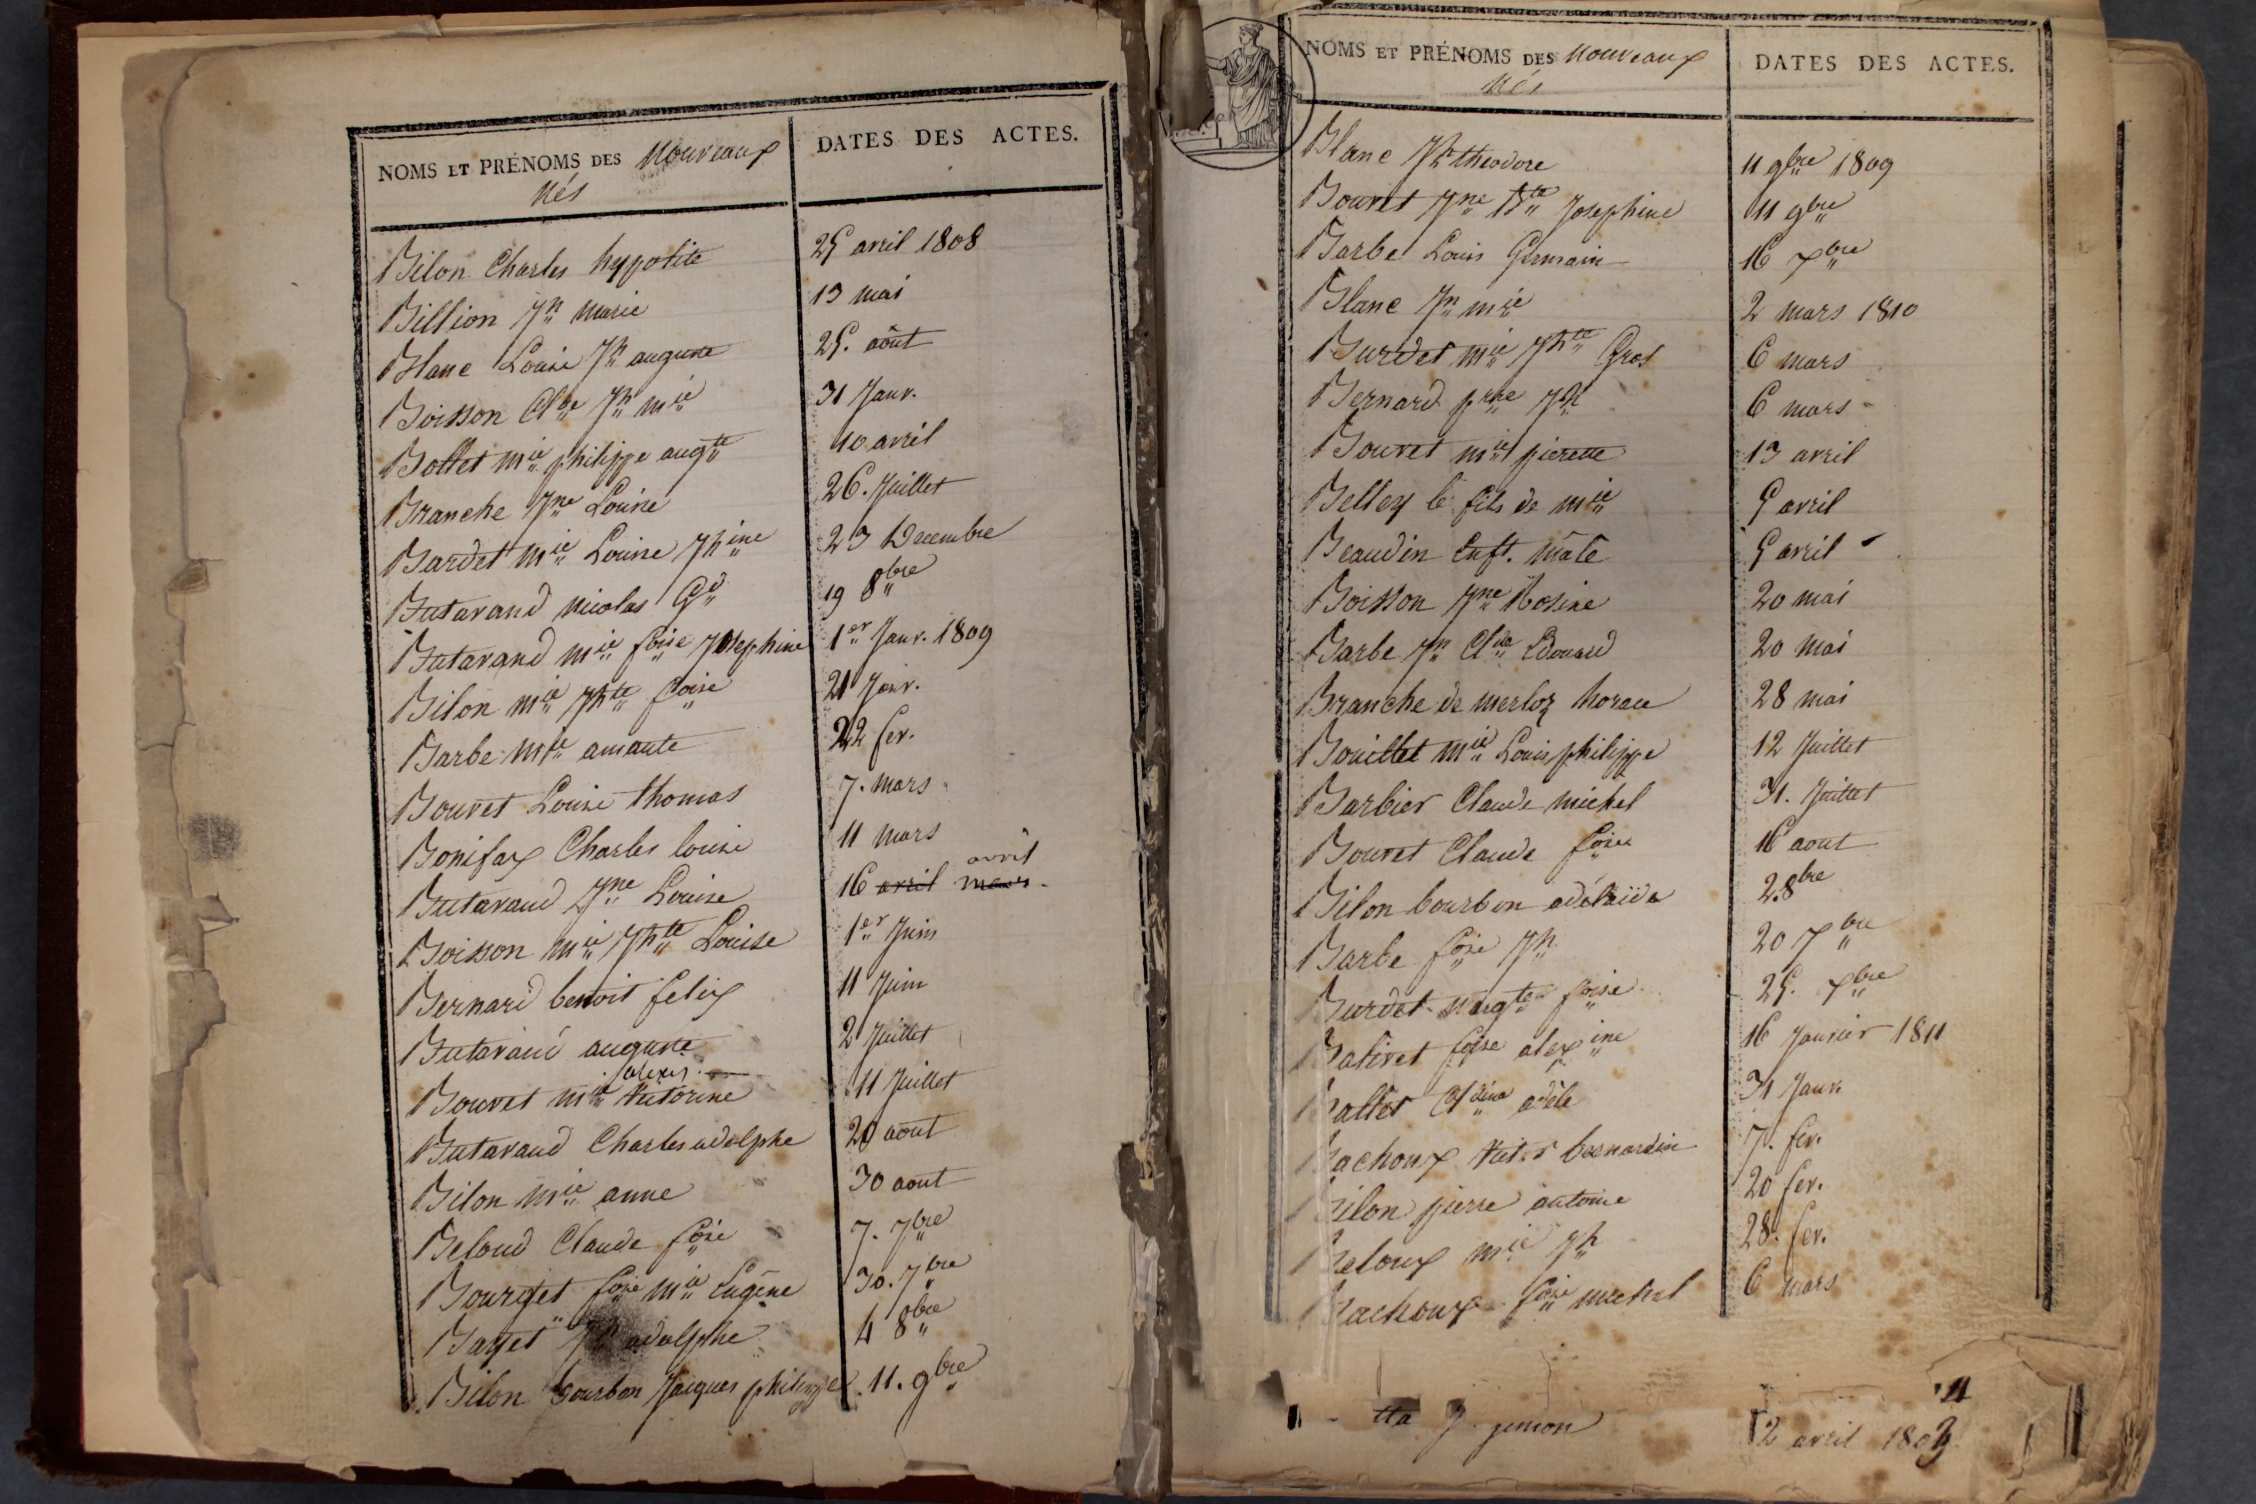 NOMS ET PRÉNOMS DES nouveaux DATES DES ACTES.
Nés
Bilon Charles hypolite 25 avril 1808
Billion Jn marie 13 mai
Blanc Louise Jh auguste 25. août
Boisson Clde Jh mie 31 Janv.
Bollet mie philippe augte 10 avril
Branche Jne Louise 26. Juillet
Bardet mie Louise Jhine 23 Decembre
Butavand nicolas Gd 19 8bre
Butavand mie foise Josephine 1er Janv. 1809
Bilon mie Jhte foise 21 Janv.
Barbe mie amante 22 fev.
Bouvet Louise thomas 7. mars
Bonifax Charles louise 11 mars
avril
Butavand Jne Louise 16 avril mars
Boisson mie Jhte Louise 1er Juin
Bernard benoit felix 11 Juin
Butavand auguste 2 Juillet
alexis
Bouvet mie Victorine 11 Juillet
Butavand Charles adolphe 20 aout
Bilon mie anne 30 aout
Beloud Claude foise 7. 7bre
Bourget foise mie Eugène 30. 7bre
Bayet Jh adolphe 4 8bre
Bilon bourbon Jacques philippe 11. 9bre
NOMS ET PRÉNOMS DES nouveaux DATES DES ACTES.
Nés
Blanc Jh théodore 11 9bre 1809
Bouvet Jne Bte Josephine 11 9bre
Barbe Louis Germain 16 xbre
Blanc Jn mie 2 mars 1810
Burdet mie Jhte Gros 6 mars
Bernard prre Jh 6 mars
Bouvet mie pierette 13 avril
Belley le fils de mie 5 avril
Beaudin Enft. mâle 5 avril
Boisson Jne Rosine 20 mai
Barbe Jn Clde Edouard 20 mai
Branche de merloz horace 28 mai
Bouillet mie Louis philippe 12 Juillet
Barbier Claude michel 31. Juillet
Bouvet Claude foise 16 aout
Bilon bourbon adélaïde 2. 8bre
Barbe foise Jh 20 7bre
Burdet margte foise 25. xbre
Batiret foise alexine 16 Janvier 1811
Ballet Cldine adèle 31 Janv.
Bachoux Victor bernardin 7. fev.
Bilon pierre antoine 20 fev.
Beloux mie Jh 28. fev.
Bachoux foise michel 6 mars
11
gunion 12 avril 1803